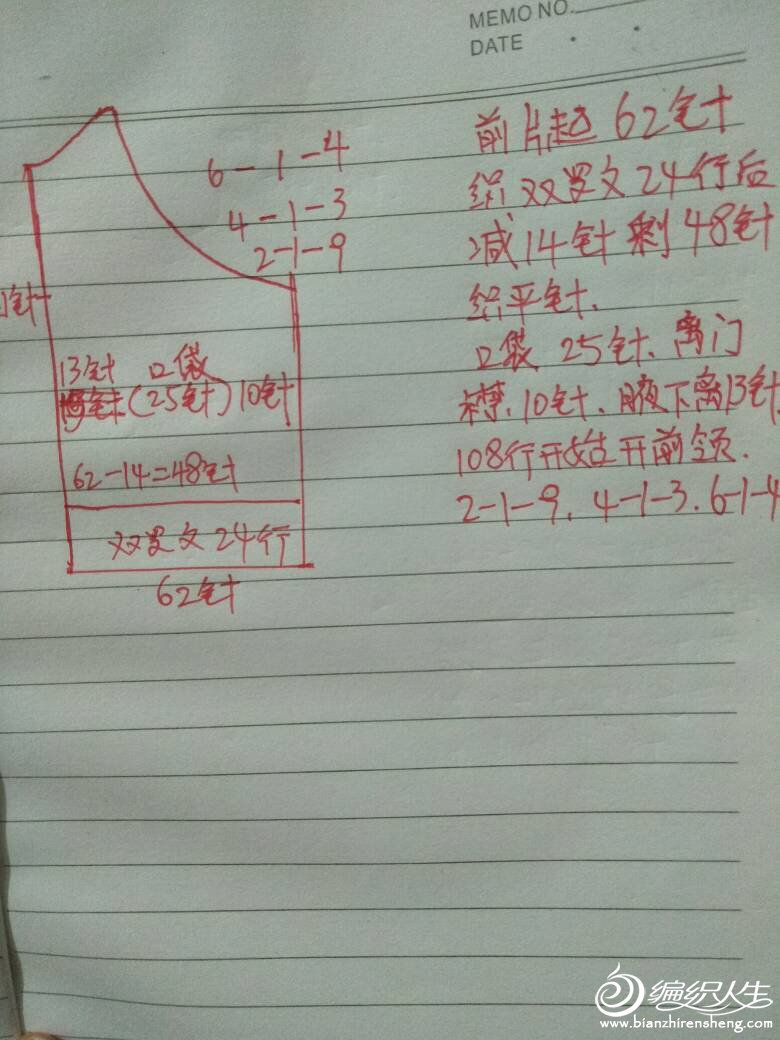 MEMO NO.
DATE
前片起 62针
织双罗文24行后
减14针剩48针
织平针.
口袋 25针. 离门
襟. 10针. 腋下离13针
108行开始开前领.
2-1-9. 4-1-3. 6-1-4
6-1-4
4-1-3
2-1-9
13针 口袋
(25针) 10针
62-14=48针
双罗文24行
62针
编织人生
www.bianzhirensheng.com